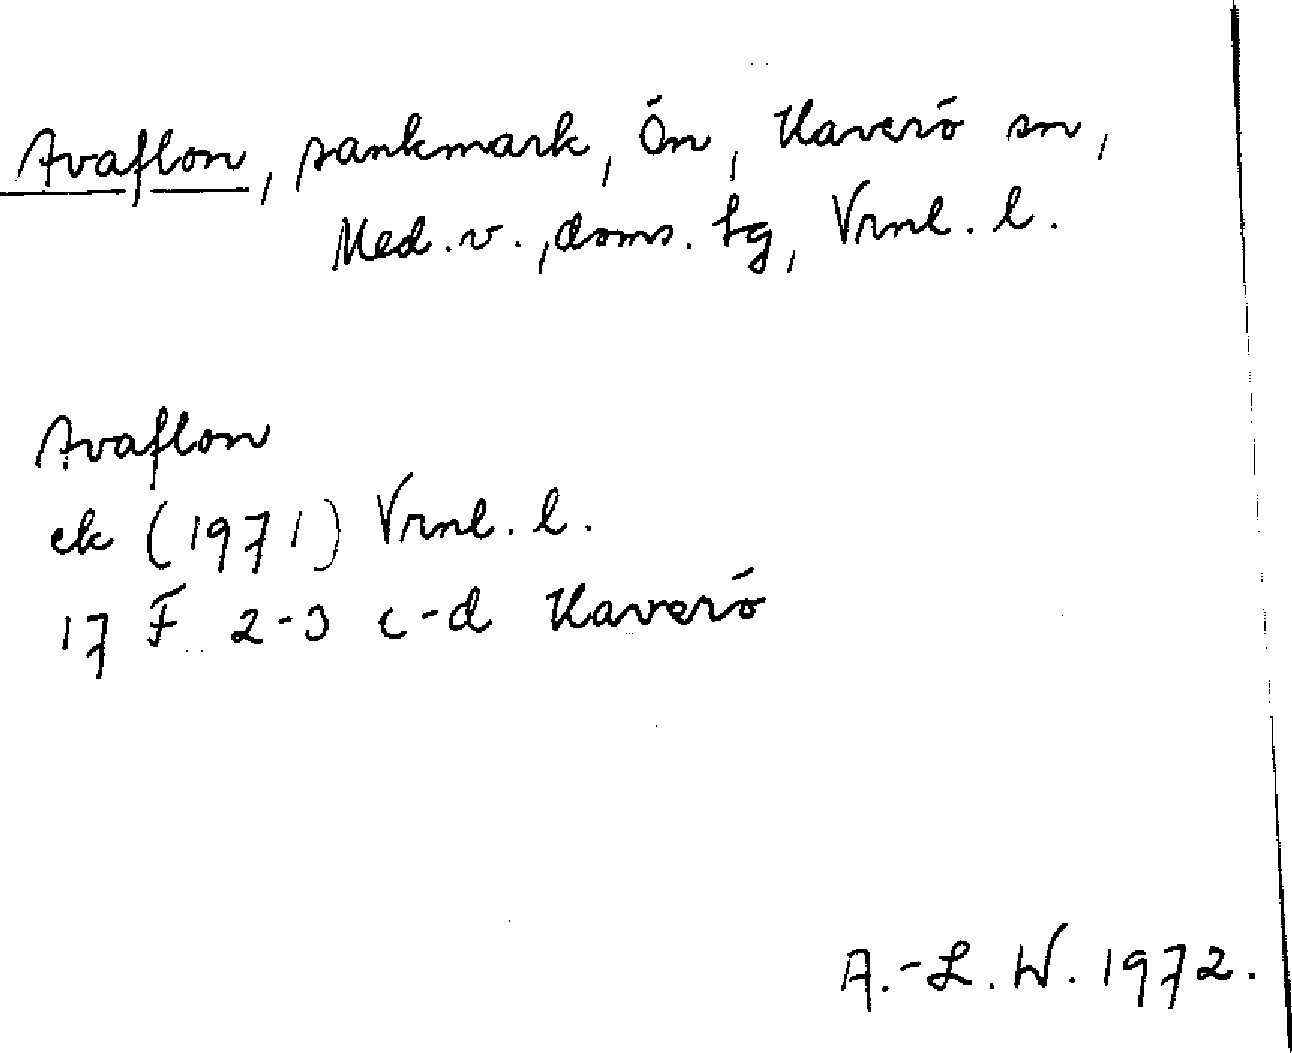 Avaflon, sankmark, Ön, Haverö sn,
Med. v., doms. tg, Vrnl. l.
Avaflon
ek (1971) Vrnl. l.
17 F 2-3 c-d Haverö
A.-L. W. 1972.